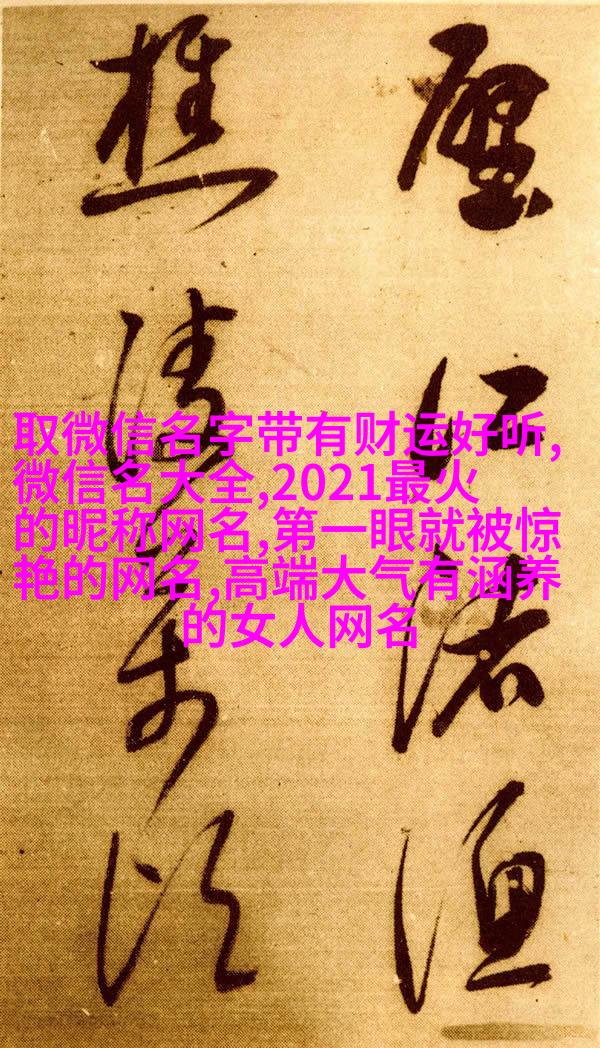 江渚漁
樵
取微信名字带有财运好听,
微信名大全,2021最火
的昵称网名,第一眼就被惊
艳的网名,高端大气有涵养
的女人网名